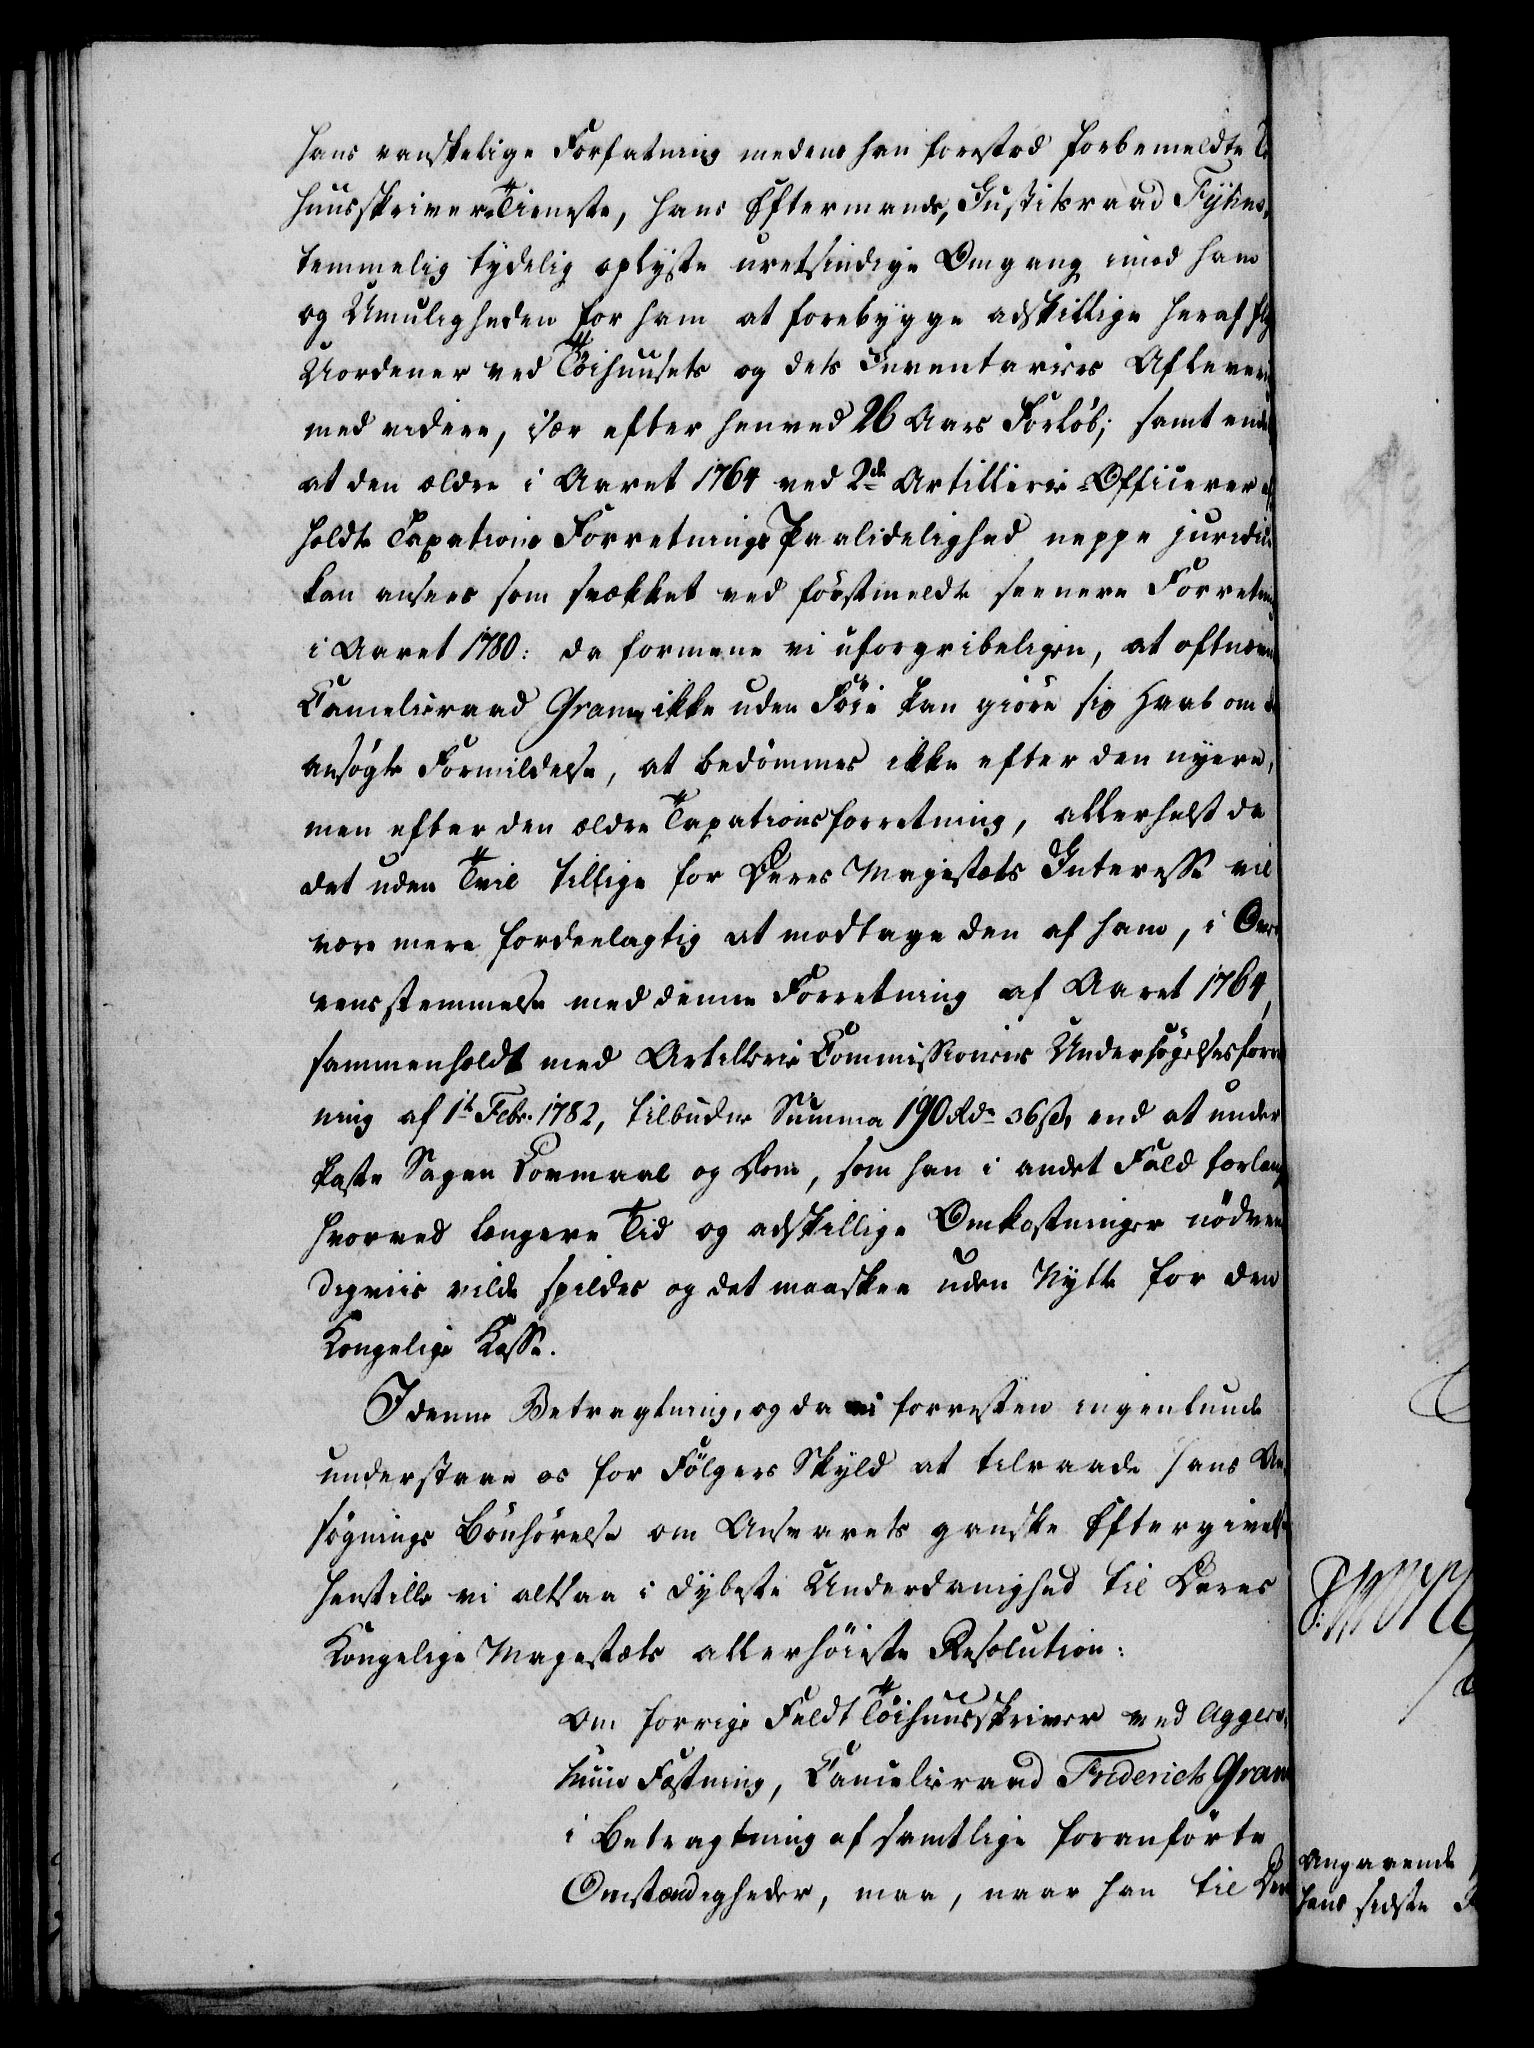 hans vanskelige Forfatning medens han forestod forbemeldte
huusskriver Tieneste, hans Eftermands, Justitsraad Fyhns,
temmelig tydelig oplyste uretsindige Omgang imod ham
og Umuligheden for ham at forebygge adskillige heraf
Uordener ved Töihuusets og dets Inventariers Afleveri
med videre, især efter henved 26 Aars Forlöb; samt ende
at den ældre i Aaret 1764 ved 2de Artillerie-Officerer af
holdte Taxations Forretnings Paalidelighed neppe juridice
kan ansees som svækket ved förstmeldte seenere Forretning
i Aaret 1780: da formene vi uforgribeligen, at oftnævn
Cancelieraad Gram ikke uden Föie kan giöre sig Haab om
ansögte Formildelse, at bedömmes ikke efter den nyere,
men efter den ældre Taxationsforretning, allerhelst da
det uden Tvil tillige for Deres Majestæts Interesse vil
være mere fordeelagtig at modtage den af ham, i Over
eensstemmelse med denne Forretning af Aaret 1764,
sammenholdt med Artillerie Commissionens Undersögelsesforre
ning af 1t Febr. 1782, tilbudne Summa 190 Rdr 36 s, end at under
kaste Sagen Lovmaal og Dom, som han i andet Fald forlang
hvorved længere Tid og adskillige Omkostninger nödven
digviis vilde spildes og det maaskee uden Nytte for den
Kongelige Kasse.
I denne Betragtning, og da vi forresten ingenlunde
understaae os for Fölgers Skyld at tilraade hans An
sögnings Bönhörelse om Ansvarets ganske Eftergivelse
henstille vi altsaa i dybeste Underdanighed til Deres
Kongelige Majestæts allerhöieste Resolution:
Om forrige Feldt Töihuusskriver ved Aggers,
huus Fæstning, Cancelieraad Friderich Gram
i Betragtning af samtlige foranförte
Omstændigheder, maa, naar han til Der
Angaaende
hans sidste